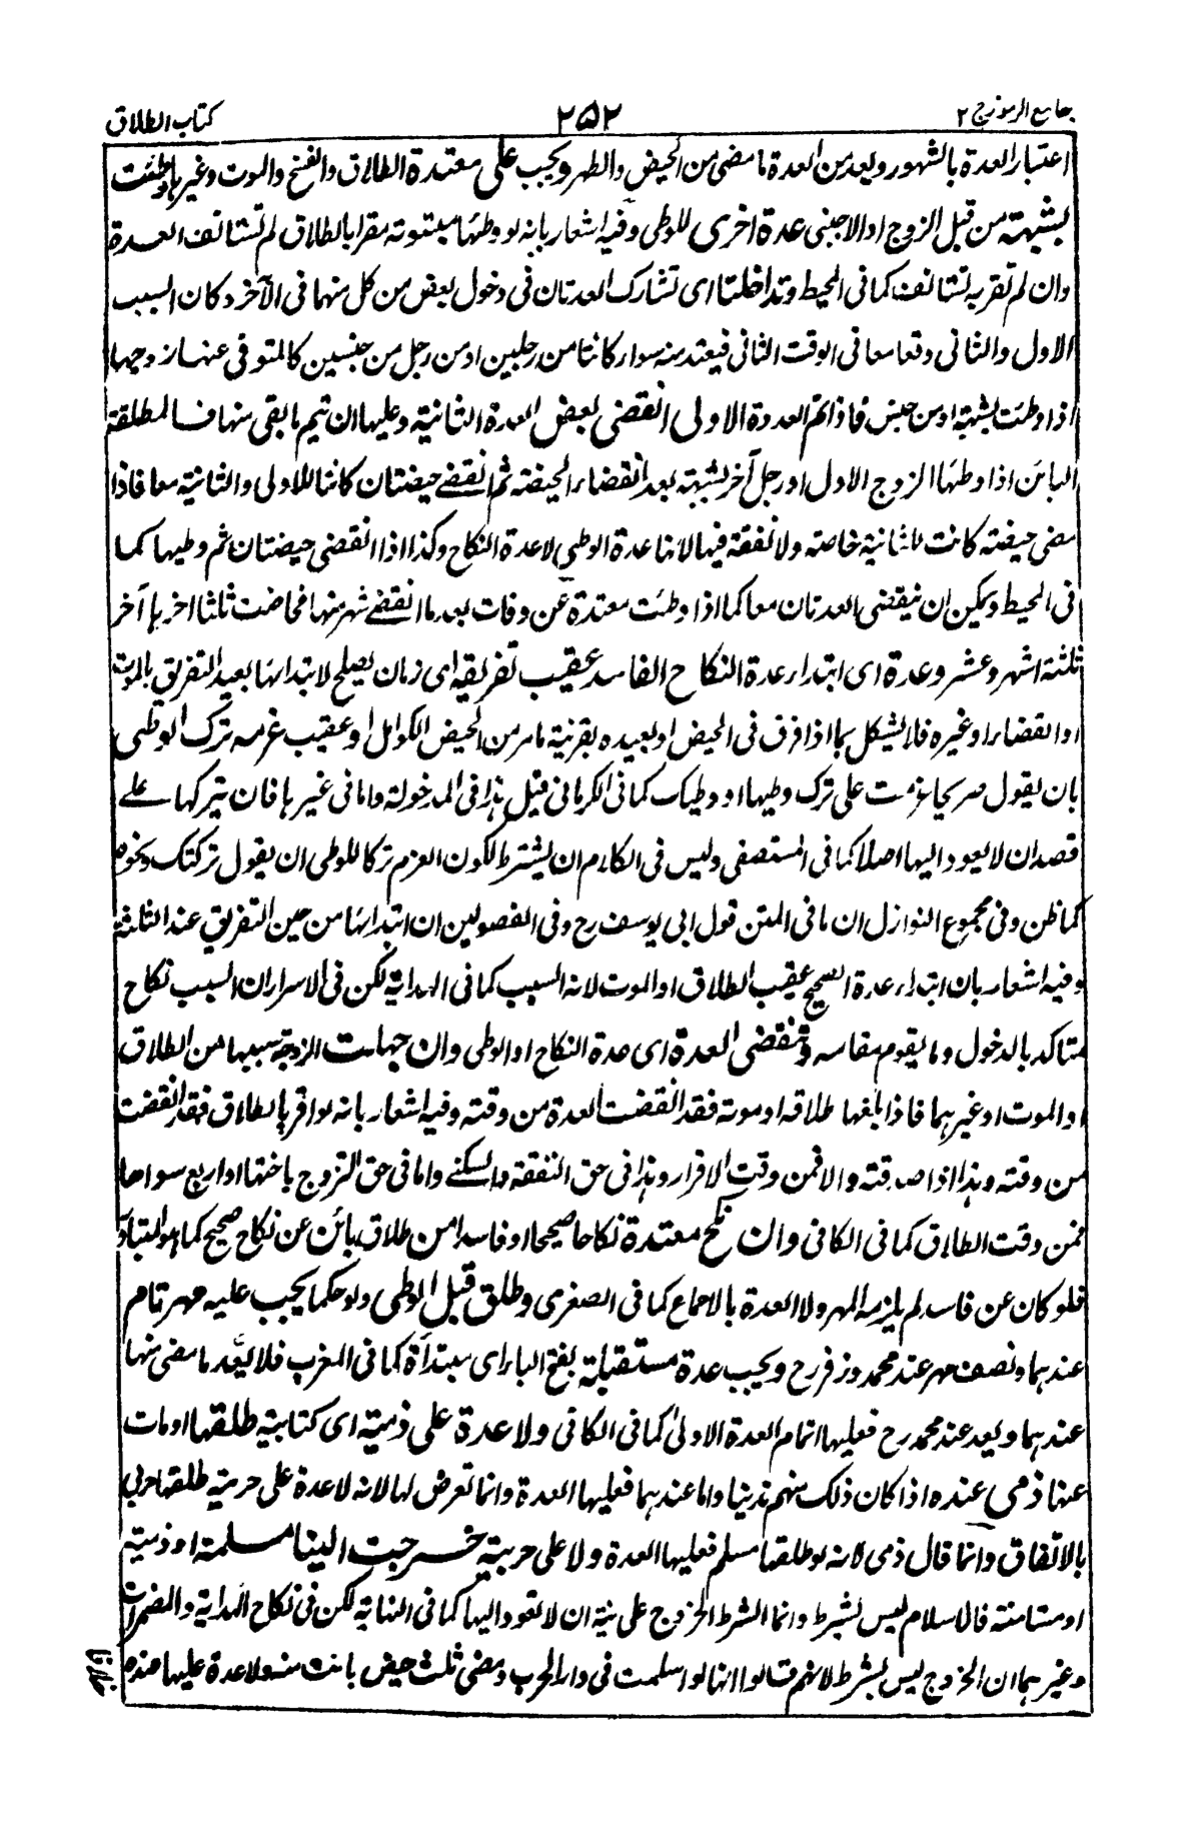 جامع الرموز ج ٢
٢٥٢
كتاب الطلاق
اعتبار العدة بالشهور ويعد من العدة ما مضى من الحيض والطهر ويجب على معتدة الطلاق والفسخ والموت وغيرها وطئت
بشبهة من قبل الزوج او الاجنبي عدة اخرى للوطي وفيه اشعار بانه لو وطئها مبتوتة مقرا بالطلاق لم تستانف العدة
وان لم تقر به تستانف كما فى المحيط وتداخلتا اى تشارك العدتان فى دخول بعض من كل منهما فى الآخر وكان السبب
الاول والثانى وقعا معا فى الوقت الثانى فيعتد منه سواء كانتا من رجلين او من رجل من جنسين كالمتوفى عنها زوجها
اذا وطئت بشبهة او من جنس فاذا تم العدة الاولى انقضى بعض العدة الثانية وعليها ان تتم ما بقى منها فالمطلقة
البائن اذا وطئها الزوج الاول او رجل آخر بشبهة بعد انقضاء الحيضة ثم انقضے حيضتان كانتا للاولى والثانية معا فاذا
مضى حيضة كانت للثانية خاصة ولا نفقة فيها لانها عدة الوطي لا عدة النكاح وكذا اذا انقضى حيضتان ثم وطيها كما
فى المحيط ويمكن ان ينقضى العدتان معا كما اذا وطئت معتدة عن وفات بعد ما انقضے شهر منها فحاضت ثلثا اخرها آخر
ثلثة اشهر وعشر وعدة اى ابتداء عدة النكاح الفاسد عقيب تفريقه اى زمان يصلح لابتدائها بعيد التفريق بالموت
او القضاء او غيره فلا يشكل بما اذا فرق فى الحيض او بعيده بقرينة ما مر من الحيض الكوامل او عقيب عزمه ترك الوطى
بان يقول صريحا عزمت على ترك وطيها او وطيك كما فى الكرمانى قيل هذا فى المدخولة واما فى غيرها فان تتركها علے
قصد ان لا يعود اليها اصلا كما فى المستصفى وليس فى الكلام ان يشترط لكون العزم تركا للوطى ان يقول تركتك ونحوه
كما ظن وفى مجموع النوازل ان ما فى المتن قول ابى يوسف رح وفى الفصولين ان ابتدائها من حين التفريق عند الثلثة
وفيه اشعار بان ابتداء عدة الصحيح عقيب الطلاق او الموت لانه السبب كما فى الهداية لكن فى الاسرار ان السبب نكاح
متاكد بالدخول وما يقوم مقامه وتنقضى العدة اى عدة النكاح او الوطى وان جهلت الزوجة سببها من الطلاق
او الموت او غيرهما فاذا بلغها طلاقه او موته فقد انقضت العدة من وقته وفيه اشعار بانه لو اقر بالطلاق فقد انقضت
من وقته وهذا اذا صدقته والا فمن وقت الاقرار وهذا فى حق النفقة والسكنے واما فى حق التزوج باختها او اربع سواها
فمن وقت الطلاق كما فى الكافى وان نكح معتدة نكاحا صحيحا او فاسدا من طلاق بائن عن نكاح صحيح كما هو المتبادر
فلو كان عن فاسد لم يلزمه المهر ولا العدة بالاجماع كما فى الصغرى وطلق قبل الوطى ولو حكما يجب عليه مهر تام
عندهما ونصف مهر عند محمد وزفر رح ويجب عدة مستقبلة بفتح الباء اى مبتدأة كما فى المغرب فلا يعد ما مضى منها
عندهما ويعد عند محمد رح فعليها اتمام العدة الاولى كما فى الكافى ولا عدة على ذمية اى كتابية طلقها او مات
عنها ذمى عنده اذا كان ذلك منهم تدينا واما عندهما فعليها العدة وانما تعرض لها لانه لا عدة على حربية طلقها حربى
بالاتفاق وانما قال ذمى لانه لو طلقها مسلم فعليها العدة ولا على حربية خرجت الينا مسلمة او ذمية
او مستامنة فالاسلام ليس بشرط وانما الشرط الخروج على نية ان لا تعود اليها كما فى النهاية لكن فى نكاح الهداية والمضمرات
وغيرهما ان الخروج ليس بشرط لانهم قالوا انها لو اسلمت فى دار الحرب ومضى ثلث حيض بانت منه ولا عدة عليها عنده
خلافا